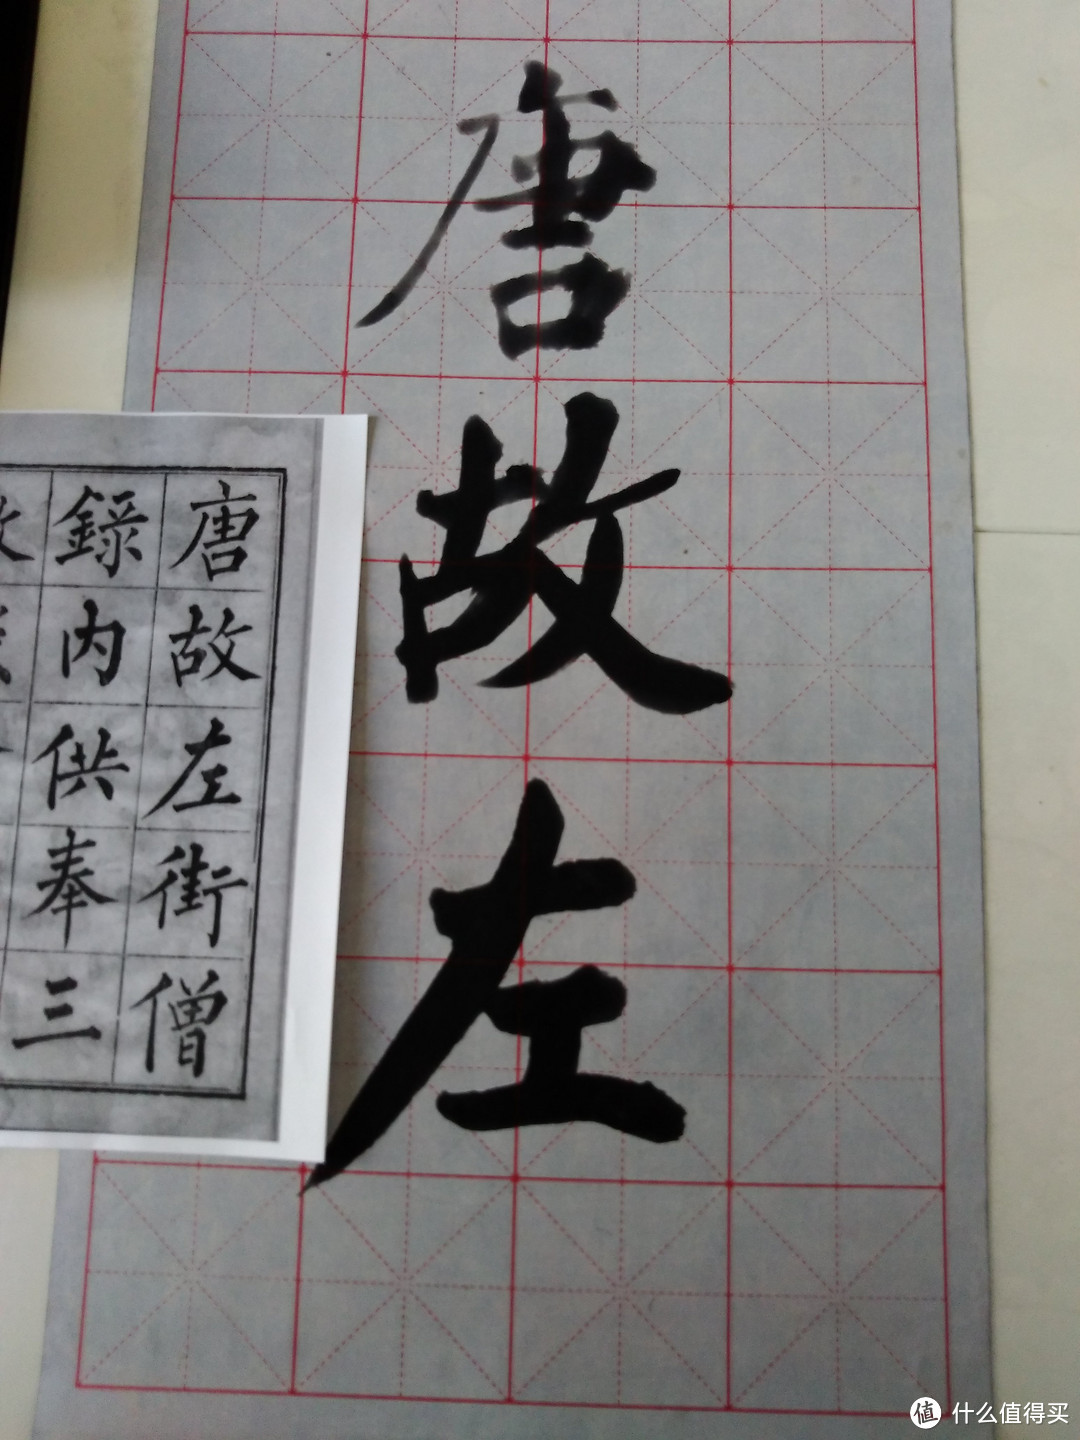 唐故左
唐故左街僧
錄内供奉三
值 什么值得买